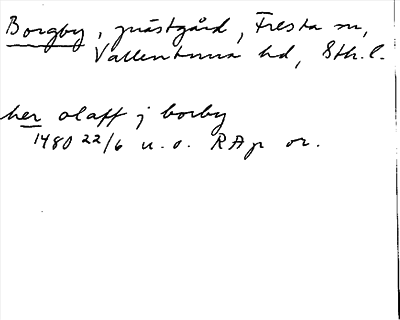 Borgby, prästgård, Fresta sn,
Vallentuna hd, Sth. l.
her olaff j borby
1480 22/6 u. o. RAp or.